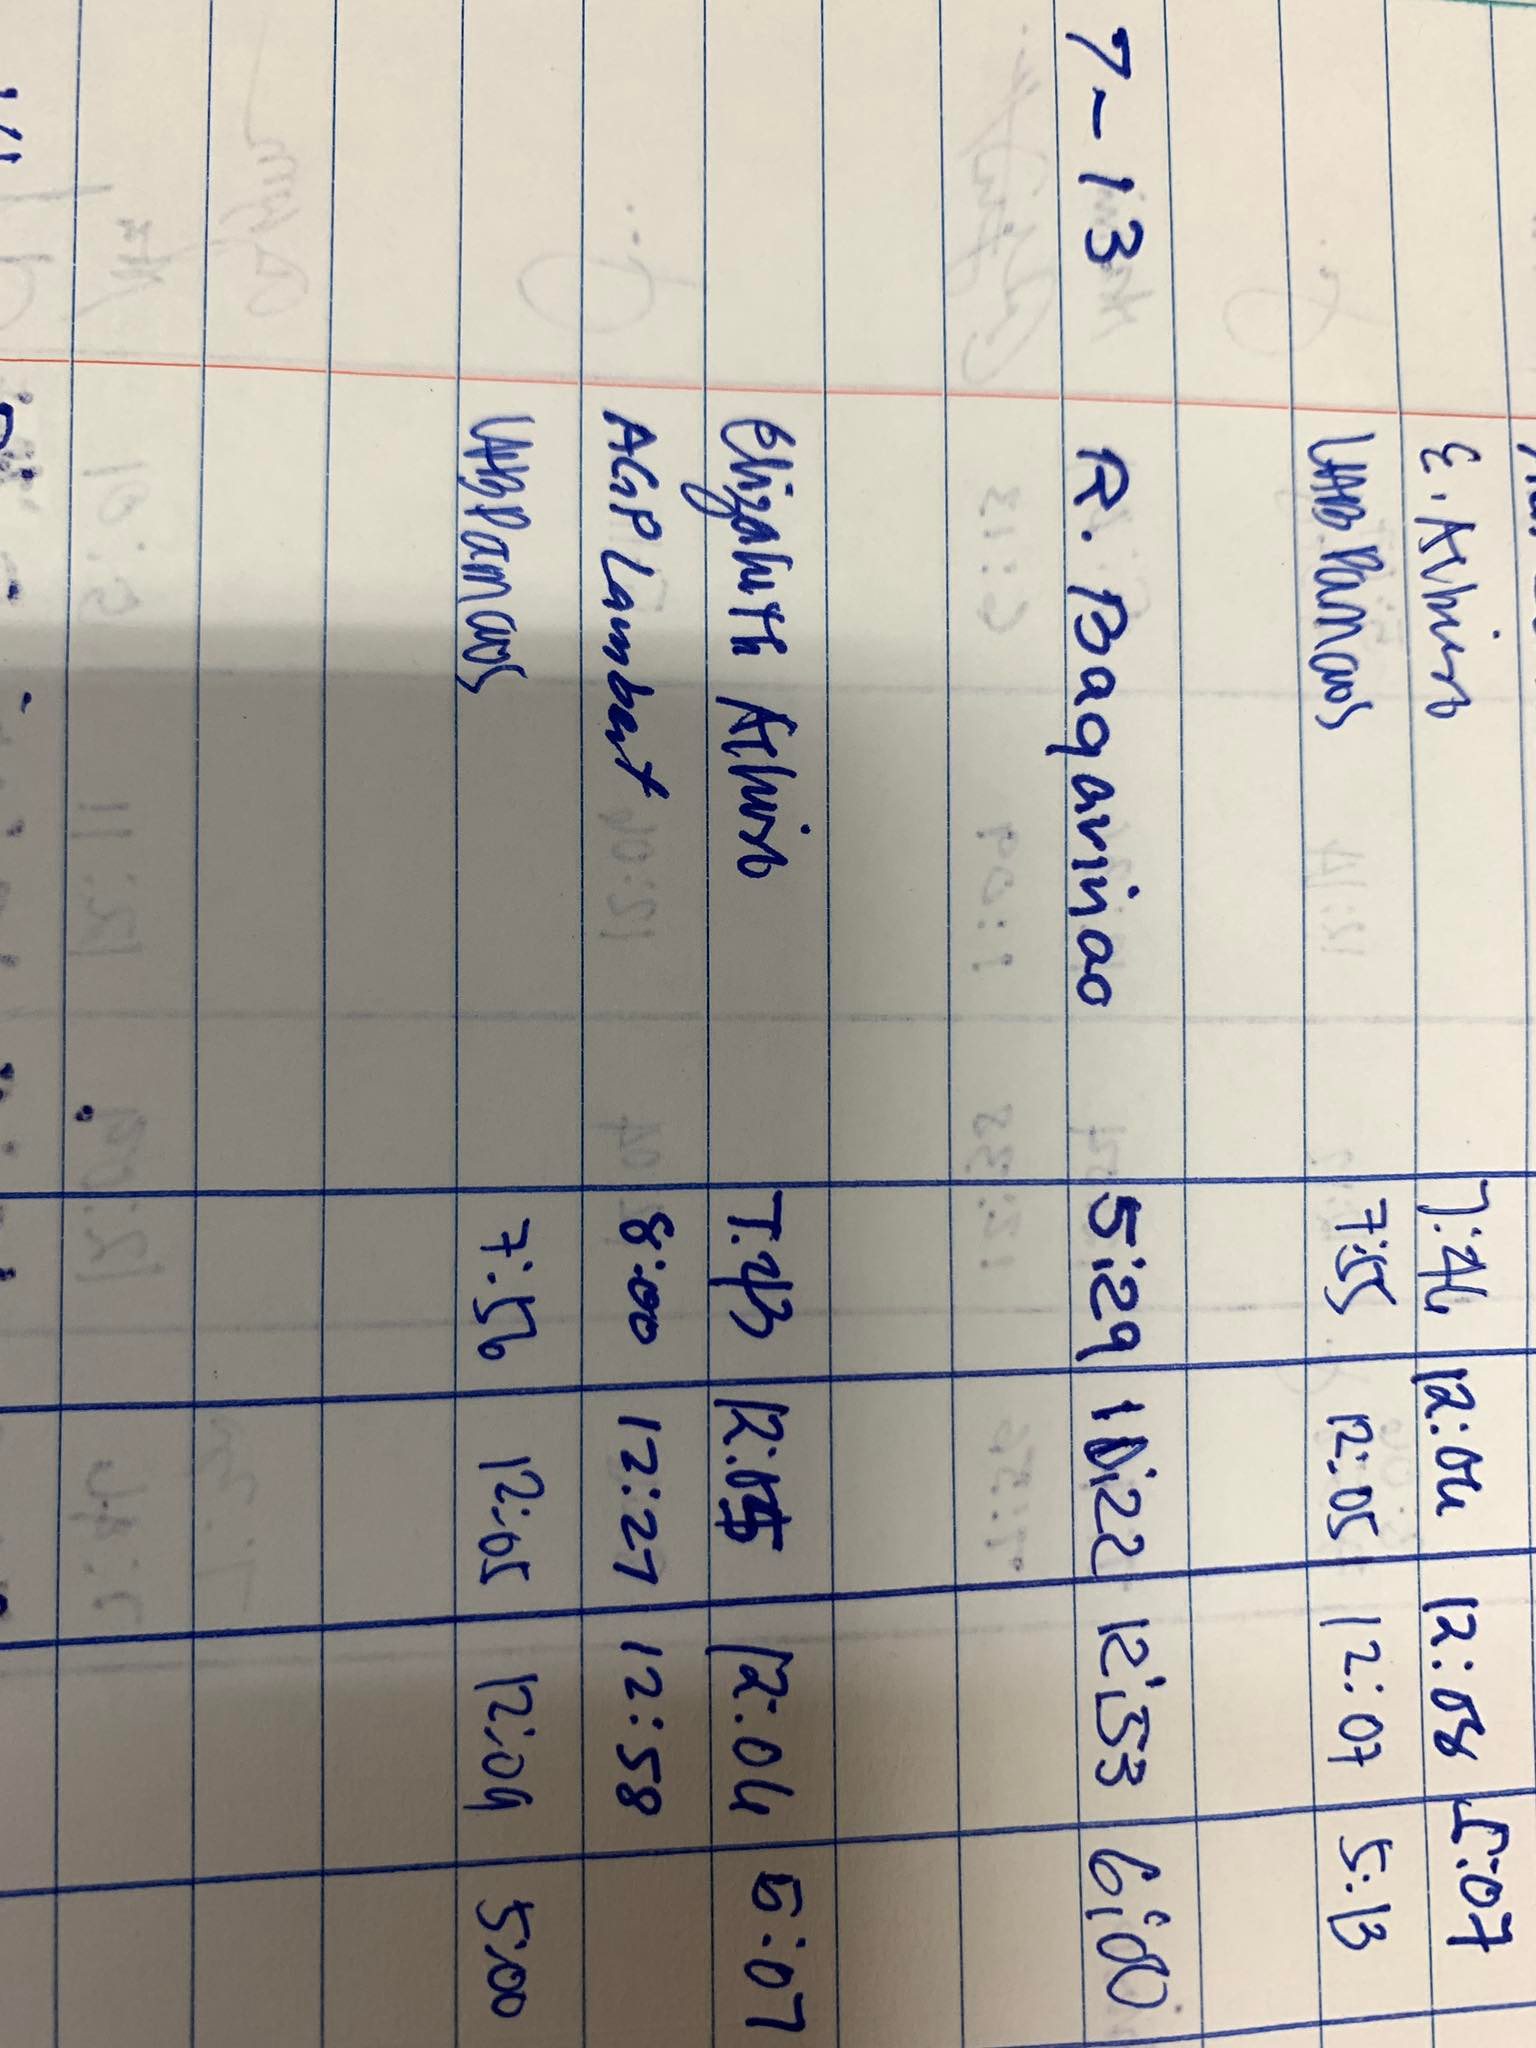 E. Athiro 7:46 12:04 12:08 5:07
LABB Pamaos 7:55 12:05 12:07 5:13
7-13 R. Baqarinao 5:29 10:22 12:53 6:00
Elizabeth Athiro 7:43 12:05 12:04 5:07
AGP Lambert 8:00 12:27 12:58
LABB Pamaos 7:56 12:05 12:09 5:00